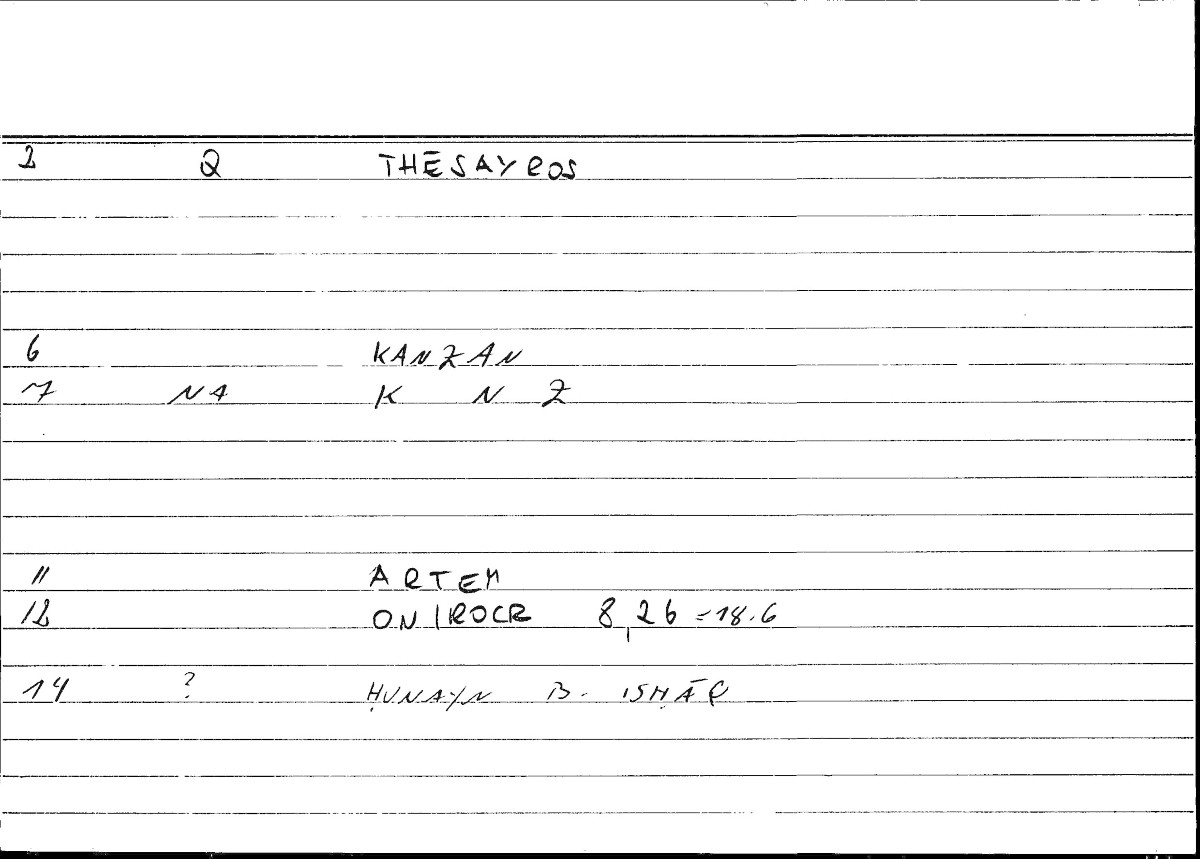 2 Q THĒSAYROS
6 KANZAN
7 NA K N Z
11 ARTEM
12 ONIROCR 8,26 = 18.6
14 ? ḤUNAYN B. ISḤĀQ